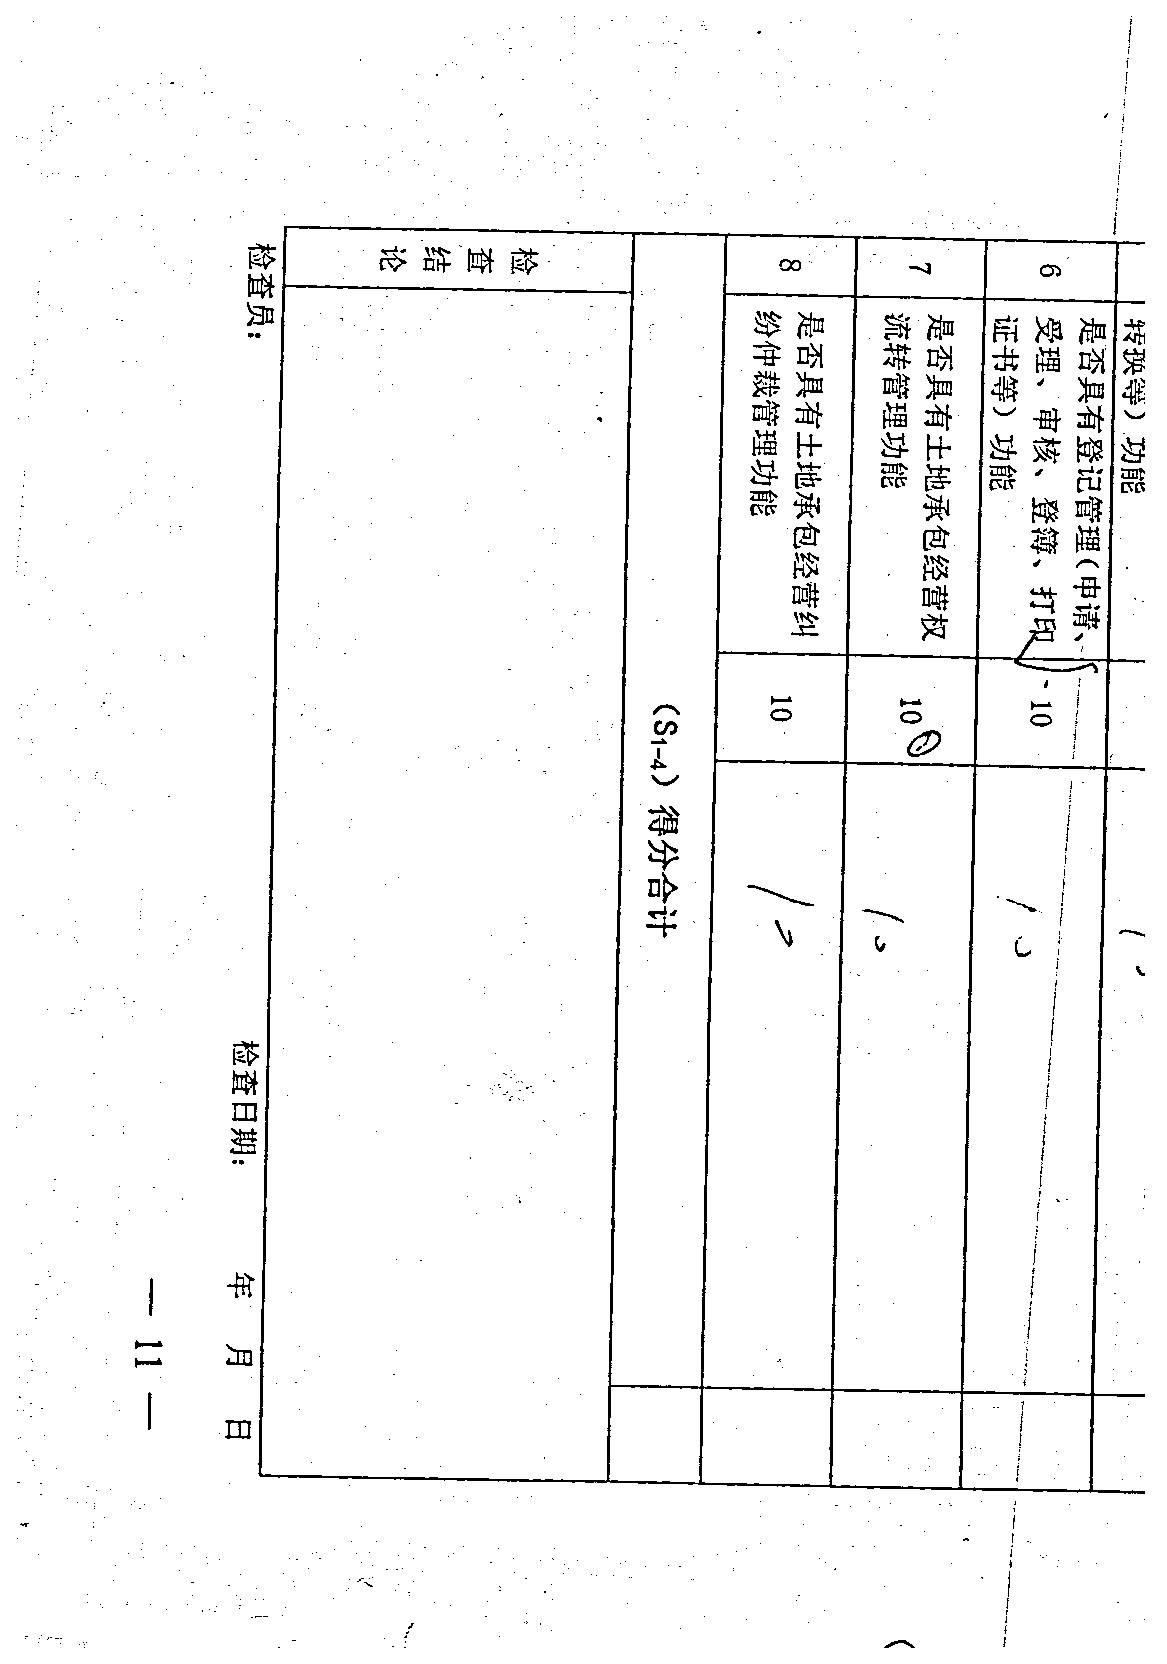 转换等）功能
6
是否具有登记管理（申请、
受理、审核、登簿、打印
证书等）功能
10
10
7
是否具有土地承包经营权
流转管理功能
10
10
8
是否具有土地承包经营纠
纷仲裁管理功能
10
10
（S1-4）得分合计
检查结论
检查员：
检查日期：
年 月 日
— 11 —